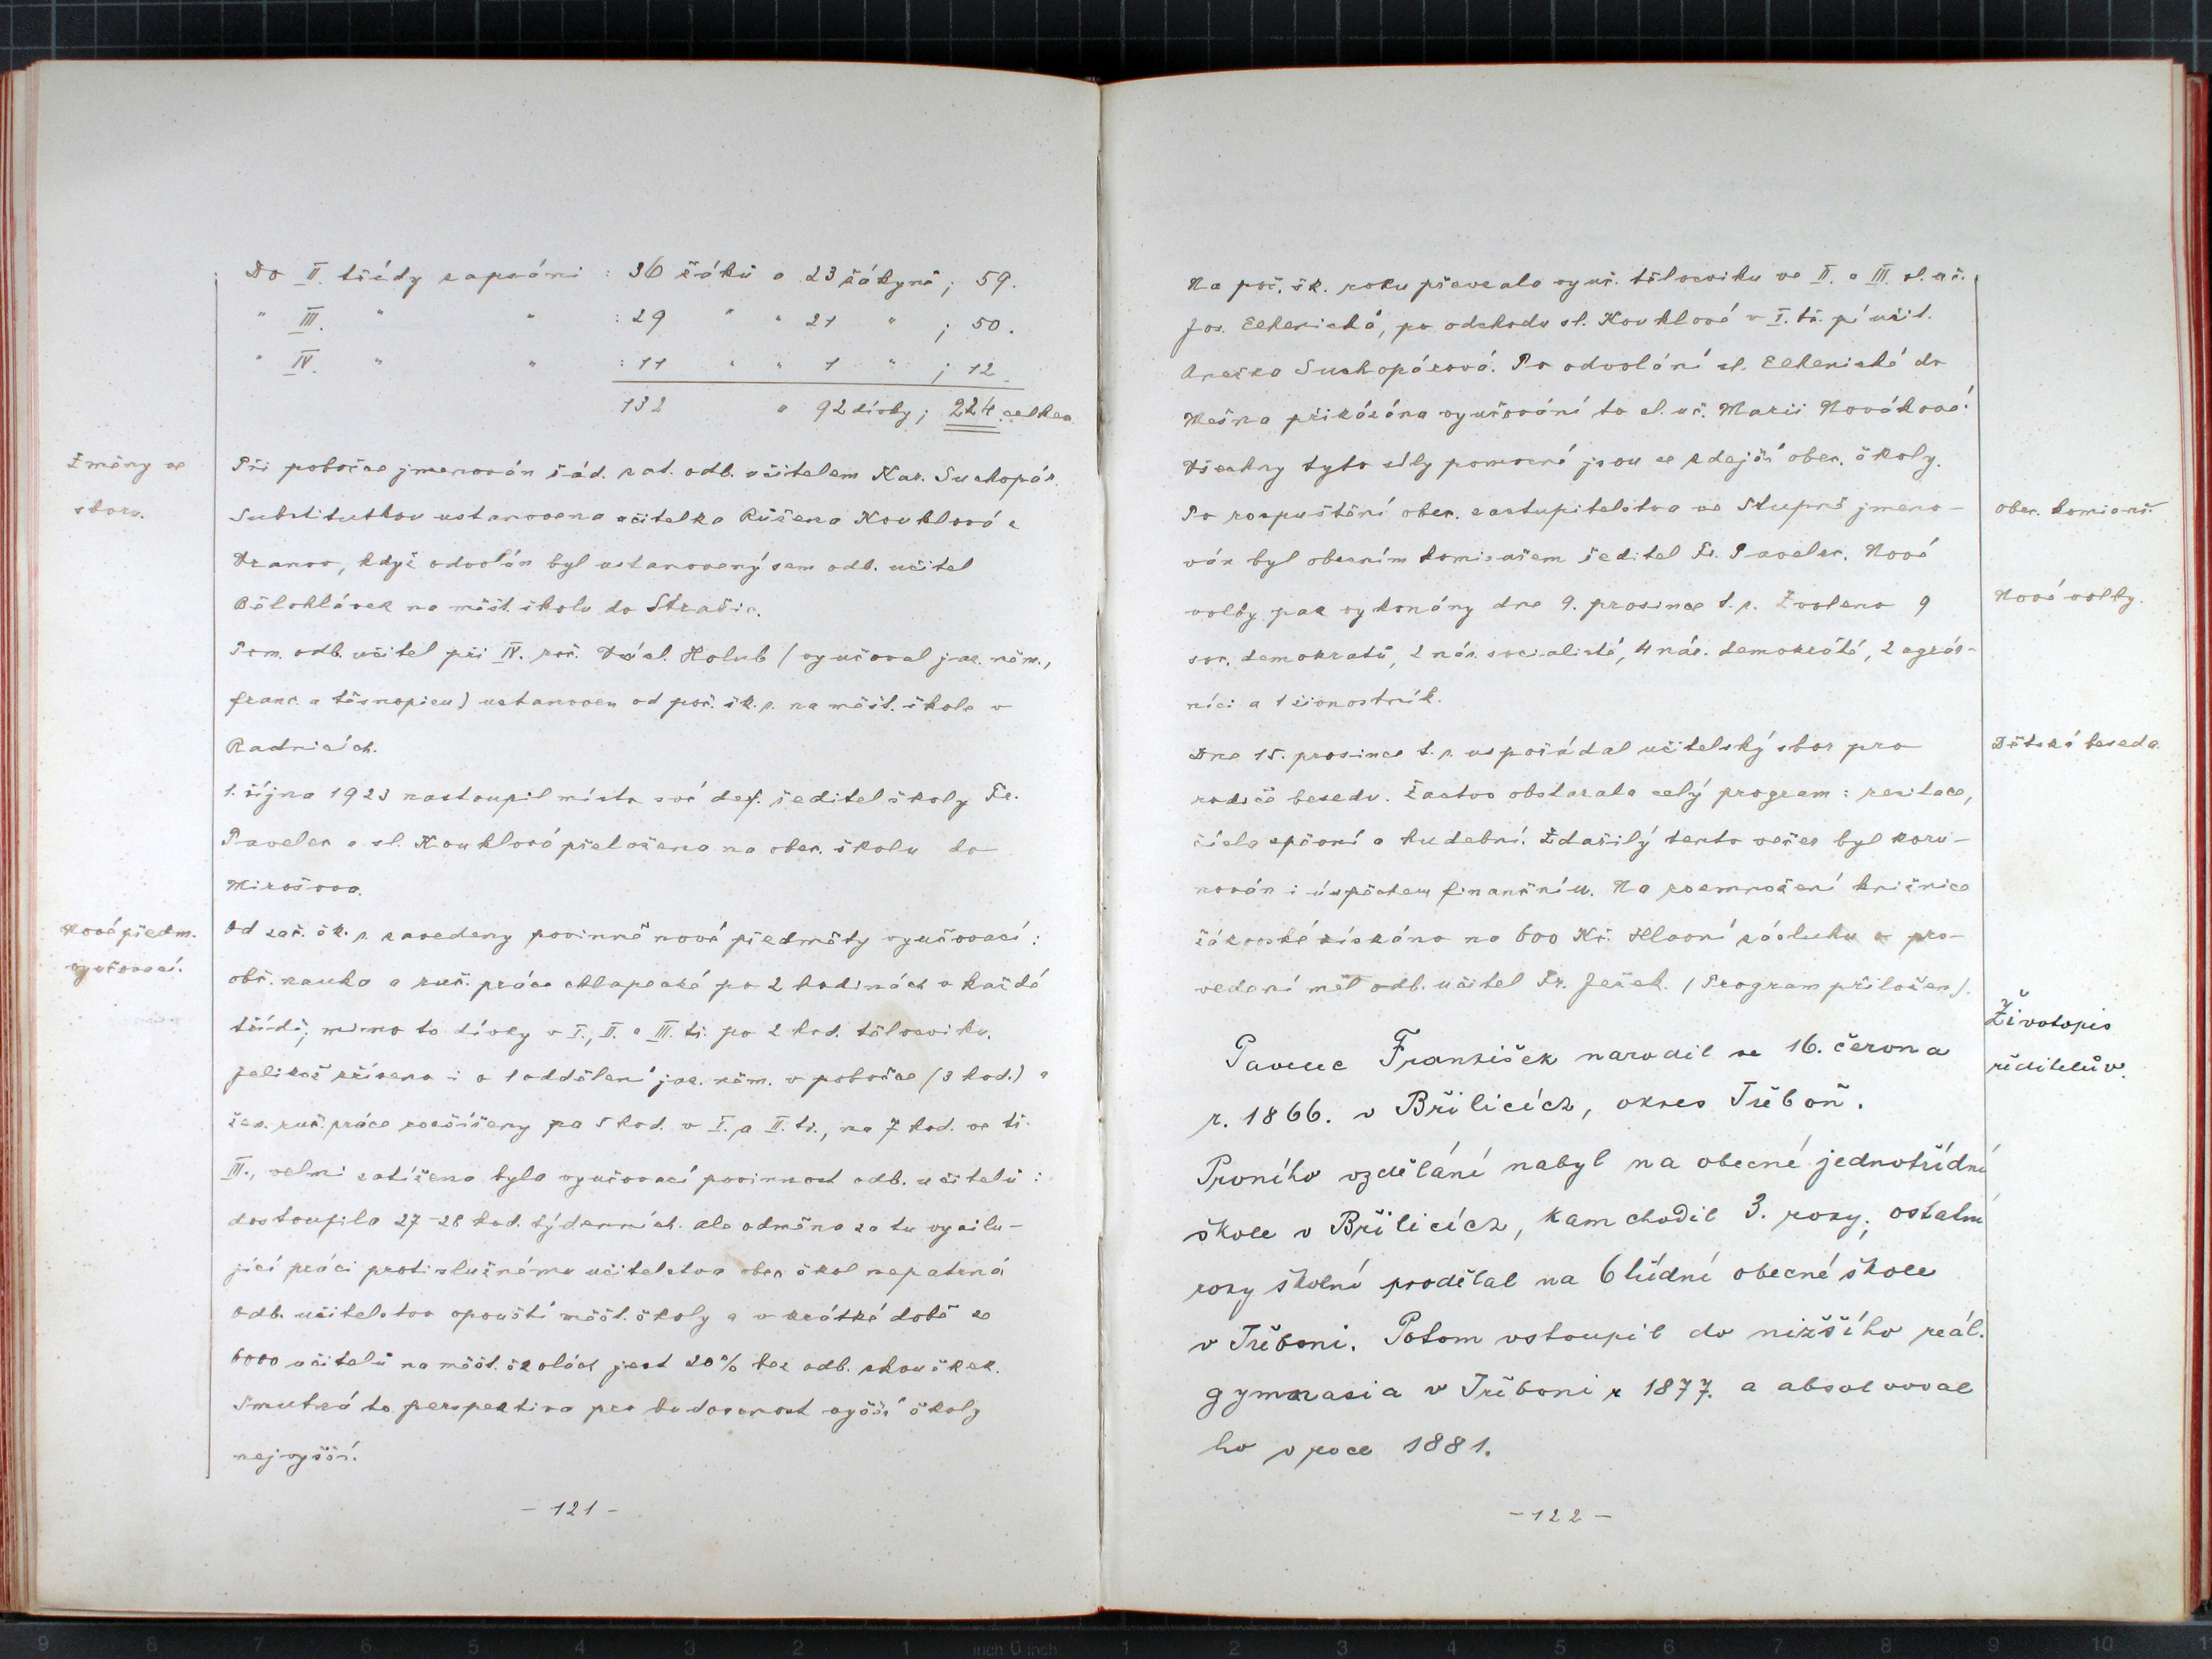 Do II. třídy zapsáni : 36 žáků a 23 žákyně ; 59.
" III. " " : 29 " " 21 " ; 50.
" IV. " " : 11 " " 1 " ; 12.
132 a 92 dívky ; 224 celkem
Změny ve
sboru.
Při pobočce jmenován řád. zat. odb. učitelem Kar. Suchopár.
Substitutkou ustanovena učitelka Růžena Kouklová z
Vranov, když odvolán byl ustanovený sem odb. učitel
Bělohlávek na měšť. školu do Strašic.
Pom. odb. učitel při IV. roč. Holub (vyučoval jaz. něm.,
franc. a těsnopisu) ustanoven od poč. šk. r. na měšť. škole v
Radnicích.
1. října 1923 nastoupil místo své def. ředitel školy Fr.
Pavelec a sl. Kouklová přeložena na obec. školu do
Mirošova.
Nové předm.
vyučovací.
Od zač. šk. r. zavedeny povinně nové předměty vyučovací :
obč. nauka a ruč. práce chlapecké po 2 hodinách v každé
třídě; mimo to dívky v I., II. a III. tř. po 2 hod. tělocviku.
Jelikož zřízeno i o 1 oddělení jaz. něm. v pobočce (3 hod.) a
žen. ruč. práce rozšířeny na 5 hod. v I. a II. tř., na 7 hod. ve tř.
III., velmi ztížena byla vyučovací povinnost odb. učitelů :
dostoupila 27-28 hod. týdenních. Ale odměna za tu vysilu-
jící práci proti služnému učitelstva obec. škol nepatrná
Odb. učitelstvo opouští měšť. školy a v krátké době ze
6000 učitelů na měšť. školách jest 20% bez odb. zkoušek.
Smutná to perspektiva pro budoucnost vyšší školy
nejvyšší.
- 121 -
Na poč. šk. roku převzala vyuč. tělocviku ve II. a III. sl. uč.
Jos. , po odchodu sl. Kouklové v I. tř. pí učit.
Anežka Suchopárová. Po odvolání sl. do
Mešna přikázáno vyučování to sl. uč. Marii Novákové.
Všechny tyto síly pomocné jsou ze zdejší obec. školy.
Po rozpuštění obec. zastupitelstva ve Stupně jmeno-
ván byl obecním komisařem ředitel Fr. Pavelec. Nové
volby pak vykonány dne 9. prosince t. r. Zvoleno 9
soc. demokratů, 2 nár. socialisté, 4 nár. demokráté, 2 agrár-
níci a 1 živnostník.
Obec. komisař.
Nové volby.
Dne 15. prosince t. r. uspořádal učitelský sbor pro
rodiče besedu. Žactvo obstaralo celý program : recitace,
čísla zpěvní a hudební. Zdařilý tento večer byl koru-
nován i úspěchem finančním. Na rozmnožení knižnice
žákovské získáno na 600 Kč. Hlavní zásluhu o pro-
vedení měl odb. učitel Fr. Ješek. (Program přiložen).
Dětská beseda.
Životopis
ředitelův.
Pavelec František narodil se 16. června
r. 1866. v Břilicích, okres Třeboň.
Prvního vzdělání nabyl na obecné jednotřídní
škole v Břilicích, kam chodil 3. roky; ostatní
roky školní prodělal na 6 třídní obecné škole
v Třeboni. Potom vstoupil do nižšího reál.
gymnasia v Třeboni r 1877. a absolvoval
ho v roce 1881.
- 122 -